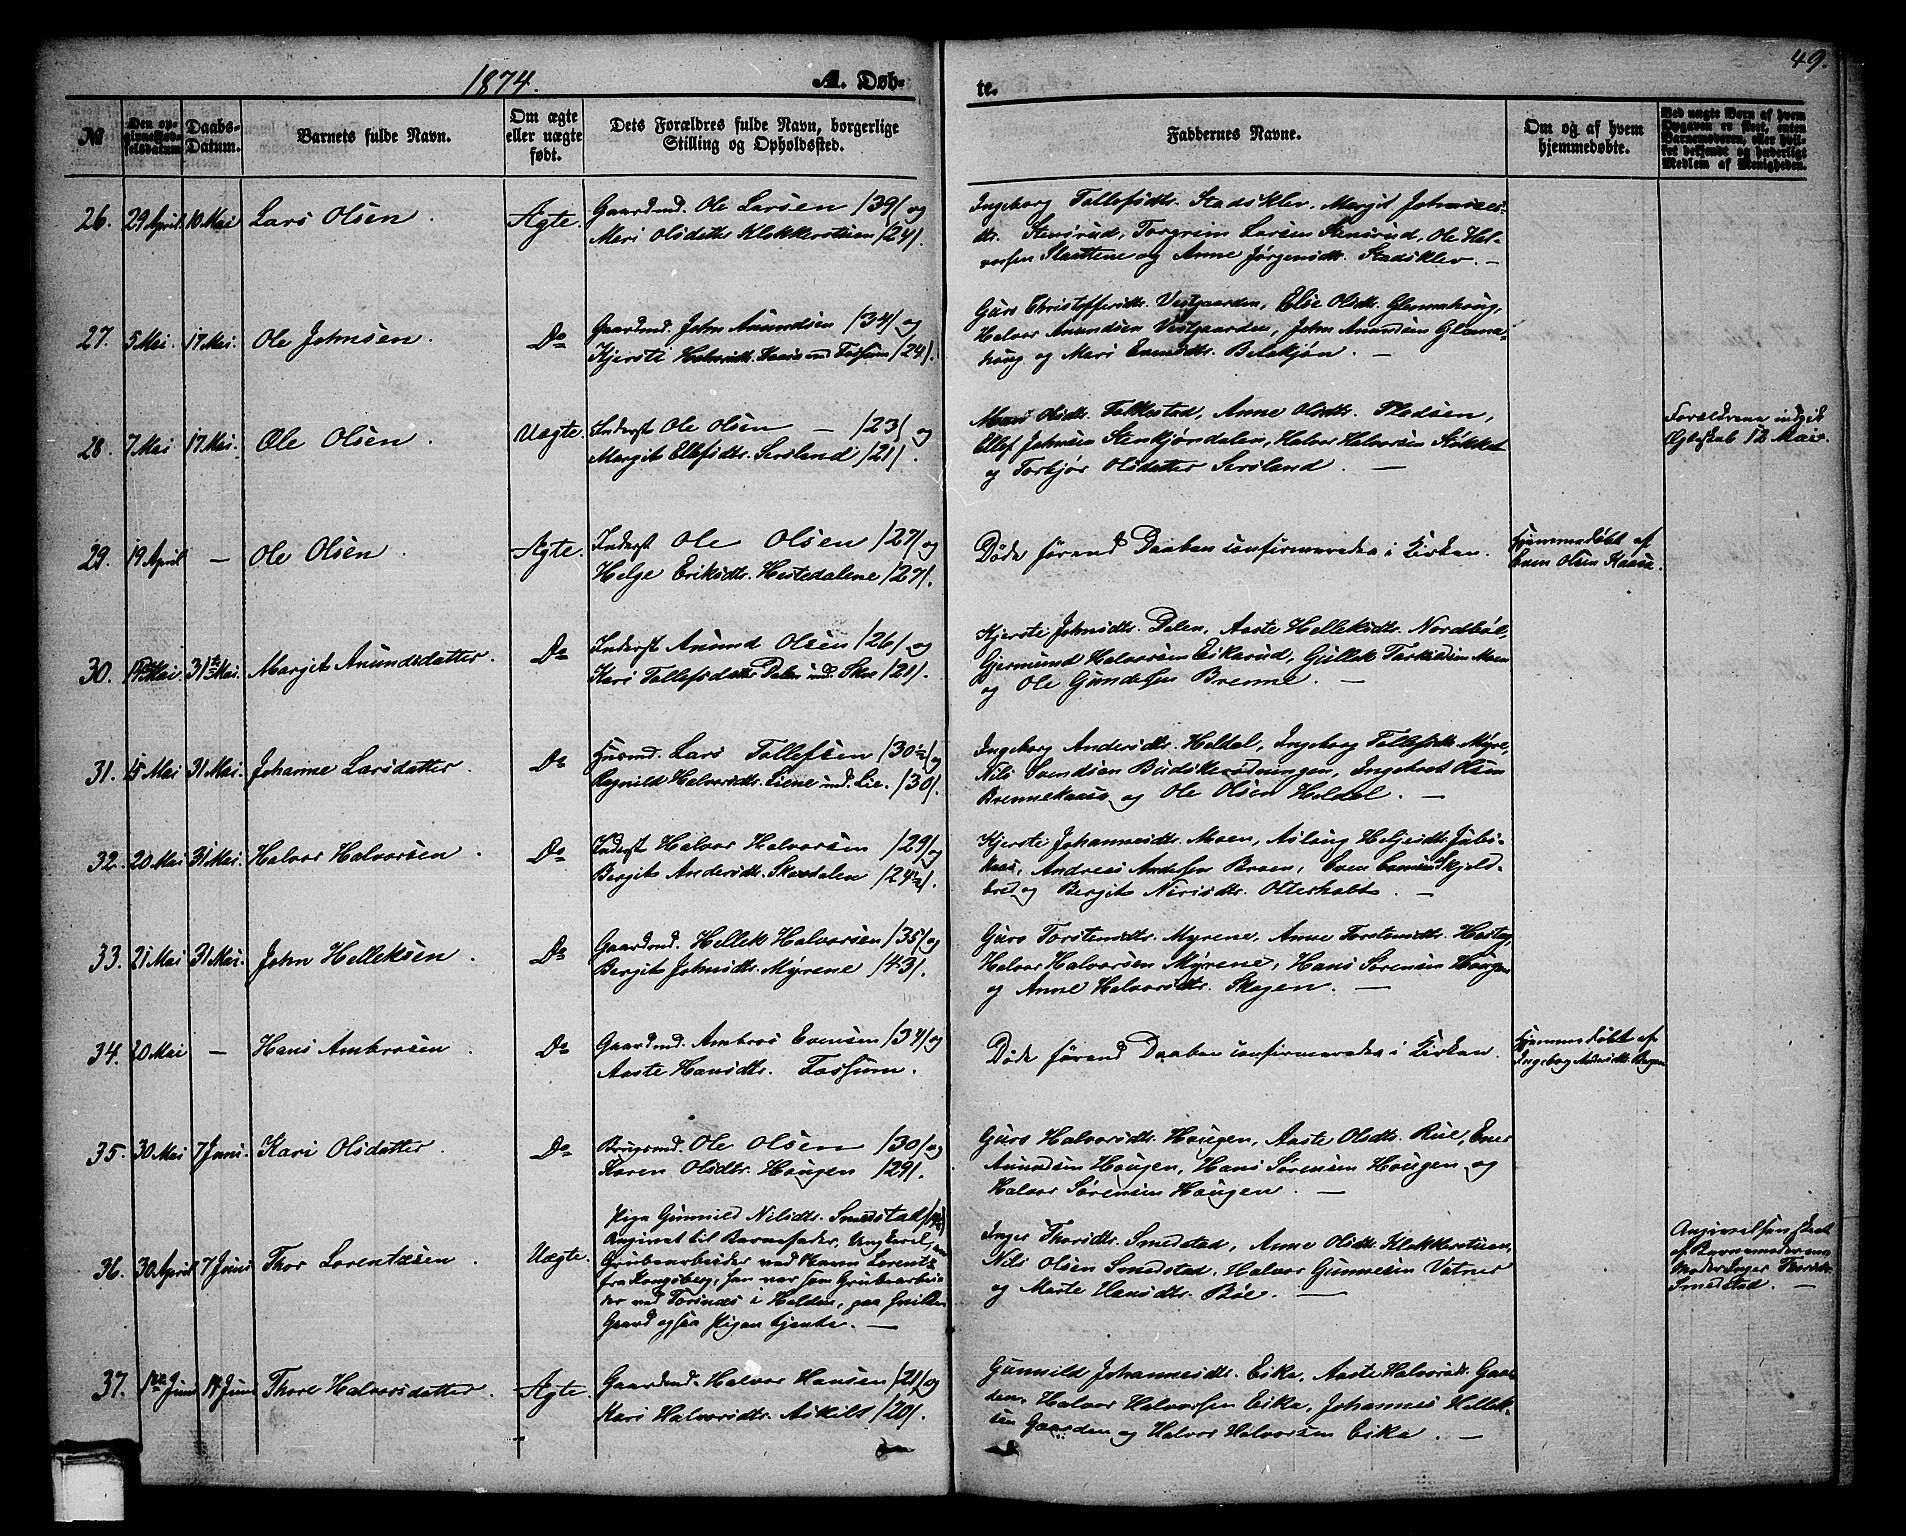 1874.
A. Døb-
te.
49.
№
Den op-
givne Fød-
selsdatum
Daabs-
Datum.
Barnets fulde Navn.
Om ægte
eller uægte
født.
Dets Forældres fulde Navn, borgerlige
Stilling og Opholdssted.
Faddernes Navne.
Om og af hvem
hjemmedøbte.
Ved uægte Børn af hvem
Opgaven er skeet, enten
Barnemoderen, eller hvil-
ket bekjendt og hæderligt
Medlem af Menigheden.
26. 29 April 10 Mai Lars Olsen. Ægte.
Gaardmd. Ole Larsen /39/ og
Mari Olsdatter Klokkerstuen /24/.
Ingeborg Tollefsdtr. Stadsklev, Margit Johannes-
dtr. Stensrud, Torgrim Larsen Stensrud, Ole Hal-
vorsen Slaattene og Anne Jørgensdtr. Stadsklev. —
27. 5 Mai 17 Mai. Ole Johnsen. Do
Gaardmd. John Anundsen /34/ og
Kjersti Halvorsdtr. Kaasa und. Fossum /24/.
Guro Christoffersdtr. Vestgaarden, Else Olsdtr. Glennehoug,
Halvor Anundsen Vestgaarden, John Anundsen Glenne-
houg og Mari Evensdtr. Bolekjøn. —
28. 7 Mai 17 Mai. Ole Olsen. Uægte.
Inderst Ole Olsen — /23/ og
Margit Ellefsdtr. Sørland /21/.
Mari Olsdtr. Folkestad, Anne Olsdtr. Pladsen,
Ellef Johnsen Stenkjøndalen, Halvor Halvorsen Stokket
og Torbjør Olsdatter Sørland. —
Forældrene indgik
Ægteskab 12 Mai.
29. 19 April — Ole Olsen. Ægte.
Inderst Ole Olsen /27/ og
Helge Eriksdtr. Hestedalene /27/.
Døde førend Daaben confirmeredes i Kirken.
Hjemmedøbt af
Even Olsen Kaasa.
30. 14 Mai 31te Mai. Margit Anundsdatter. Do
Inderst Anund Olsen /26/ og
Kari Tollefsdatter Dalen und. Skoe /21/.
Kjersti Johnsdtr. Dalen, Aaste Helleksdtr. Nordbøe,
Gjermund Halvorsen Eikerud, Gullek Tarkildsen Moen
og Ole Gundesen Brenne. —
31. 15 Mai 31 Mai. Johanne Larsdatter. Do
Husmd. Lars Tollefsen /30½/ og
Ragnild Halvorsdtr. Liene und. Lie. /30/.
Ingeborg Andersdtr. Heldal, Ingeborg Tollefsdtr. Myre,
Nils Svendsen Budskerødningen, Ingebret Olsen
Brennekaasa og Ole Olsen Heldal. —
32. 20 Mai 31 Mai. Halvor Halvorsen. Do
Inderst Halvor Halvorsen /29/ og
Bergit Andersdtr. Skoedalen /24½/.
Kjersti Johannesdtr. Moen, Aslaug Helgesdtr. Jubs-
kaas, Andreas Andersen Braaen, Even Evensen Skjeld-
bred og Bergit Nirisdtr. Otterholt. —
33. 21 Mai 31 Mai. John Helleksen. Do
Gaardmd. Hellek Halvorsen /35/ og
Bergit Johnsdtr. Myrene /43/.
Guro Torstensdtr. Myrene, Anne Torstensdtr. Hasteg,
Halvor Halvorsen Myrene, Hans Sørensen Hougen
og Anne Halvorsdtr. Skogen. —
34. 20 Mai — Hans Ambrosen. Do
Gaardmd. Ambros Evensen /34/ og
Aaste Hansdtr. Fossum.
Døde førend Daaben confirmeredes i Kirken.
Hjemmedøbt af
Ingeborg Andersdtr. Bergen
35. 30 Mai 7 Juni. Kari Olsdatter. Do
Brugsmd. Ole Olsen /30/ og
Karen Olsdtr. Hougen /29/.
Guro Halvorsdtr. Hougen, Aaste Olsdtr. Rue, Even
Anundsen Hougen, Hans Sørensen Hougen og
Halvor Sørensen Hougen. —
36. 30 April 7 Juni Thor Lorentzsen Uægte.
Pige Gunnild Nilsdtr. Smedstad
Angivet til Barnefader, Ungkarl,
Grubearbeider ved Navn Lorentz
fra Kongsberg, han var som Grubearbei-
der ved Torsnæs i Holden, paa hvilken
Gaard ogsaa Pigen tjente. —
Inger Thorsdtr. Smedstad, Anne Olsdtr. Klokkerstuen,
Nils Olsen Smedstad, Halvor Gunnesen Vatnar
og Marte Hansdtr. Bøe. —
Angivelsen skeet
af Barnemoderens
Moder Inger Thorsdtr.
Smedstad. —
37. 1ste Juni 14 Juni Thore Halvorsdatter. Ægte.
Gaardmd. Halvor Hansen /21/ og
Kari Halvorsdtr. Askilt /20/.
Gunnild Johannesdtr. Eika, Aaste Halvorsdtr. Gaar-
den, Halvor Halvorsen Eika, Johannes Hellek-
sen Gaarden og Halvor Halvorsen Eika. —